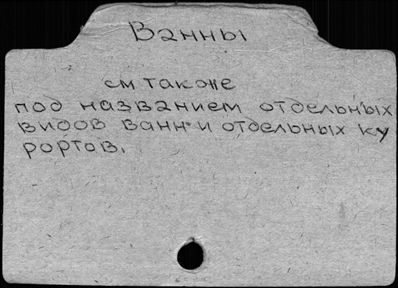 Ванны
см также
под названием отдельных
видов ванн и отдельных ку
рортов.